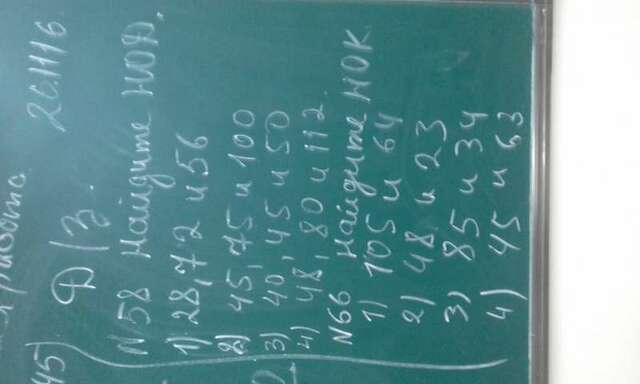 работа
45)
20.11.16
Д/з.
N58 Найдите НОД.
1) 28, 72 и 56
2) 45, 75 и 100
3) 40, 45 и 50
4) 48, 80 и 112.
N66 Найдите НОК
1) 105 и 64
2) 48 и 23
3) 85 и 34
4) 45 и 63